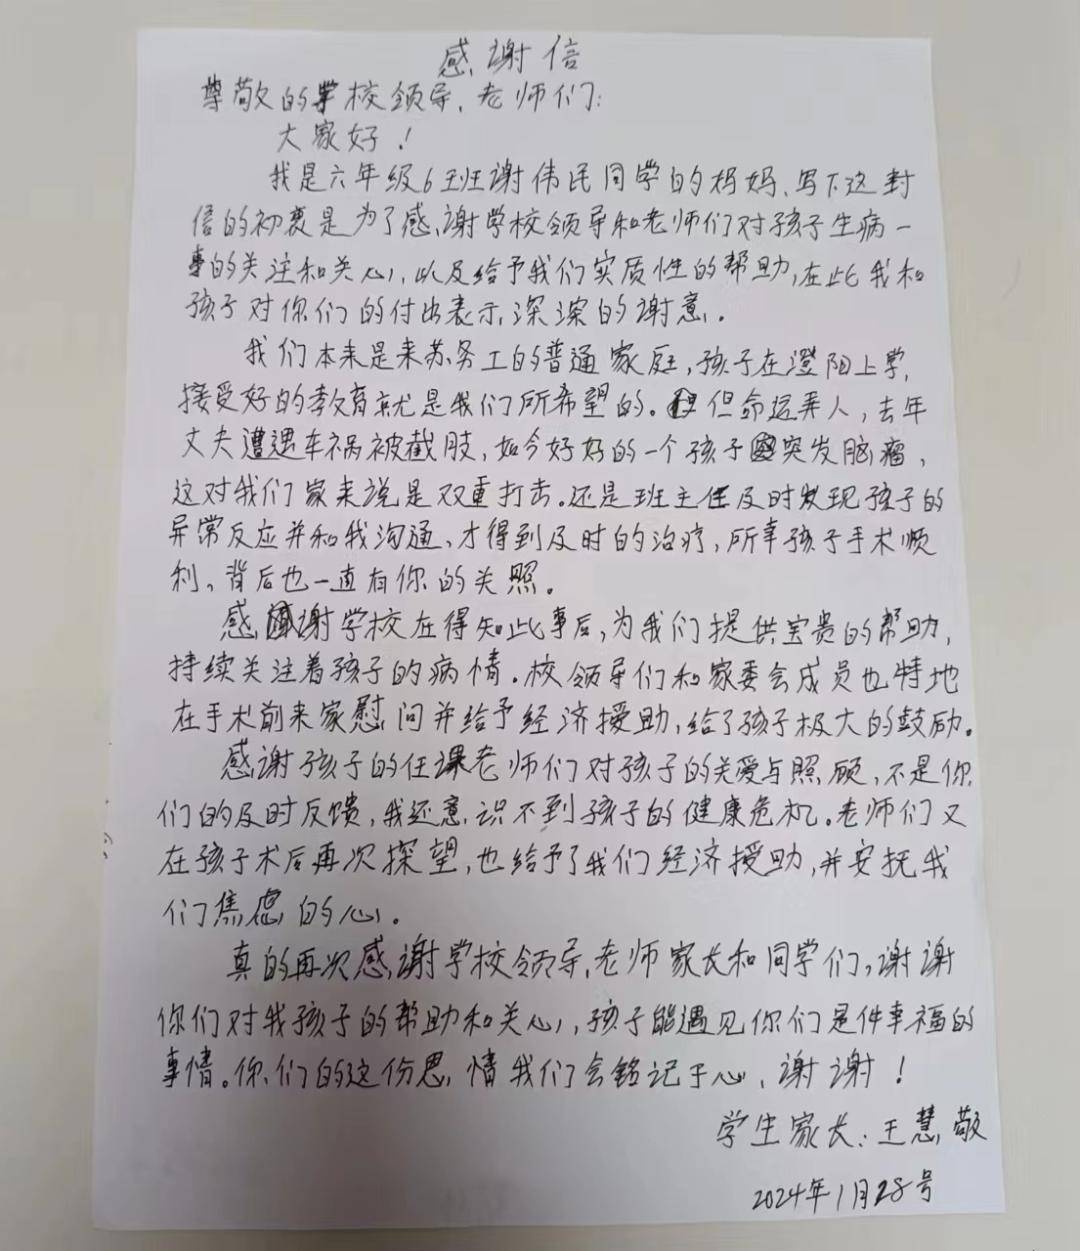 感谢信
尊敬的学校领导、老师们:
大家好!
我是六年级6班谢伟民同学的妈妈、写下这封
信的初衷是为了感谢学校领导和老师们对孩子生病一
事的关注和关心,以及给予我们实质性的帮助,在此我和
孩子对你们的付出表示深深的谢意。
我们本来是来苏务工的普通家庭,孩子在澄阳上学,
接受好的教育就是我们所希望的。但命运弄人,去年
丈夫遭遇车祸被截肢,如今好好的一个孩子突发脑瘤,
这对我们家来说是双重打击。还是班主任及时发现孩子的
异常反应并和我沟通、才得到及时的治疗,所幸孩子手术顺
利。背后也一直有你的关照。
感谢学校在得知此事后,为我们提供宝贵的帮助,
持续关注着孩子的病情。校领导们和家委会成员也特地
在手术前来家慰问并给予经济援助,给了孩子极大的鼓励。
感谢孩子的任课老师们对孩子的关爱与照顾,不是你
们的及时反馈,我还意识不到孩子的健康危机。老师们又
在孩子术后再次探望,也给予了我们经济援助,并安抚我
们焦虑的心。
真的再次感谢学校领导、老师家长和同学们,谢谢
你们对我孩子的帮助和关心,孩子能遇见你们是件幸福的
事情。你们的这份恩情我们会铭记于心、谢谢!
学生家长:王慧敬
2024年1月28号